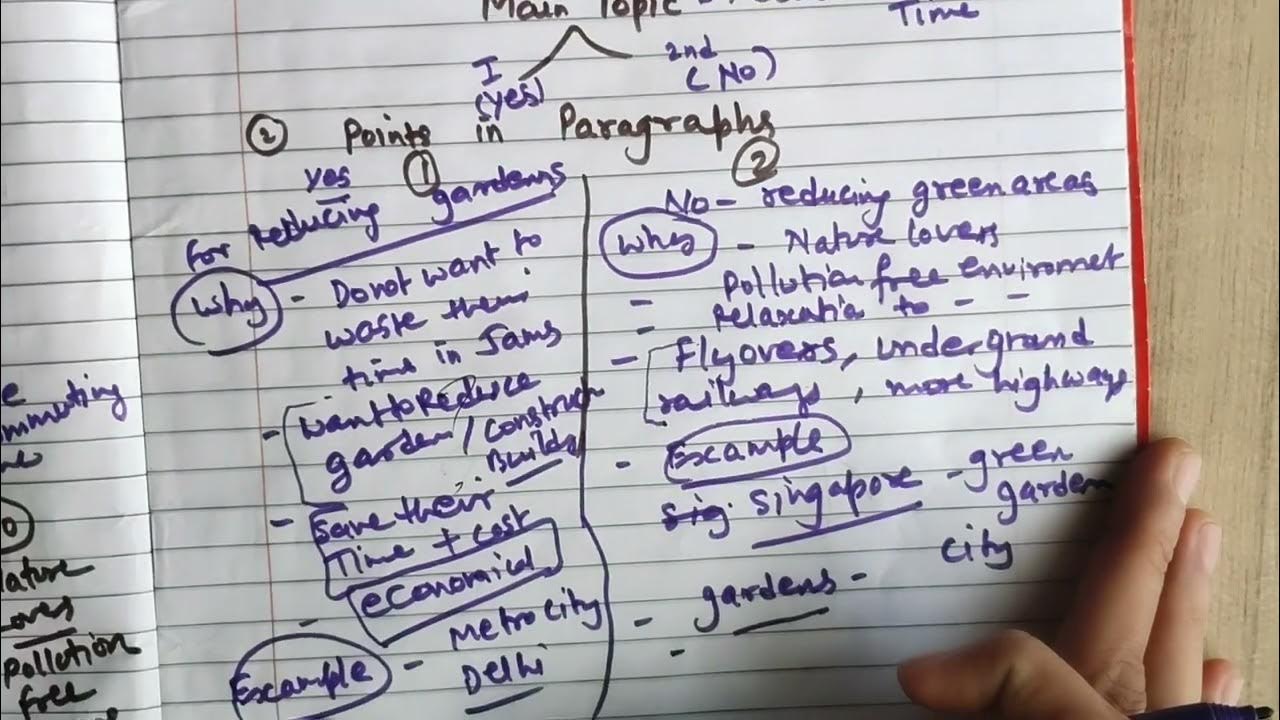 Main Topic -
Time
I
(yes)
2nd
(No)
② Points in Paragraphs
yes ①
for reducing gardens
Why - Do not want to
waste their
time in Jams
- want to Reduce
garden / Construct
Builds
- Save their
Time + cost
- economical
Example - Metro city
Delhi
②
No - reducing green areas
Why - Nature lovers
- Pollution free enviromet
- Relaxatia to - -
- Flyovers, undergrand
railways, more highways
- Example
sig. Singapore - green
garden
city
- gardens -
-
mmuting
ature
oves
Pollution
free